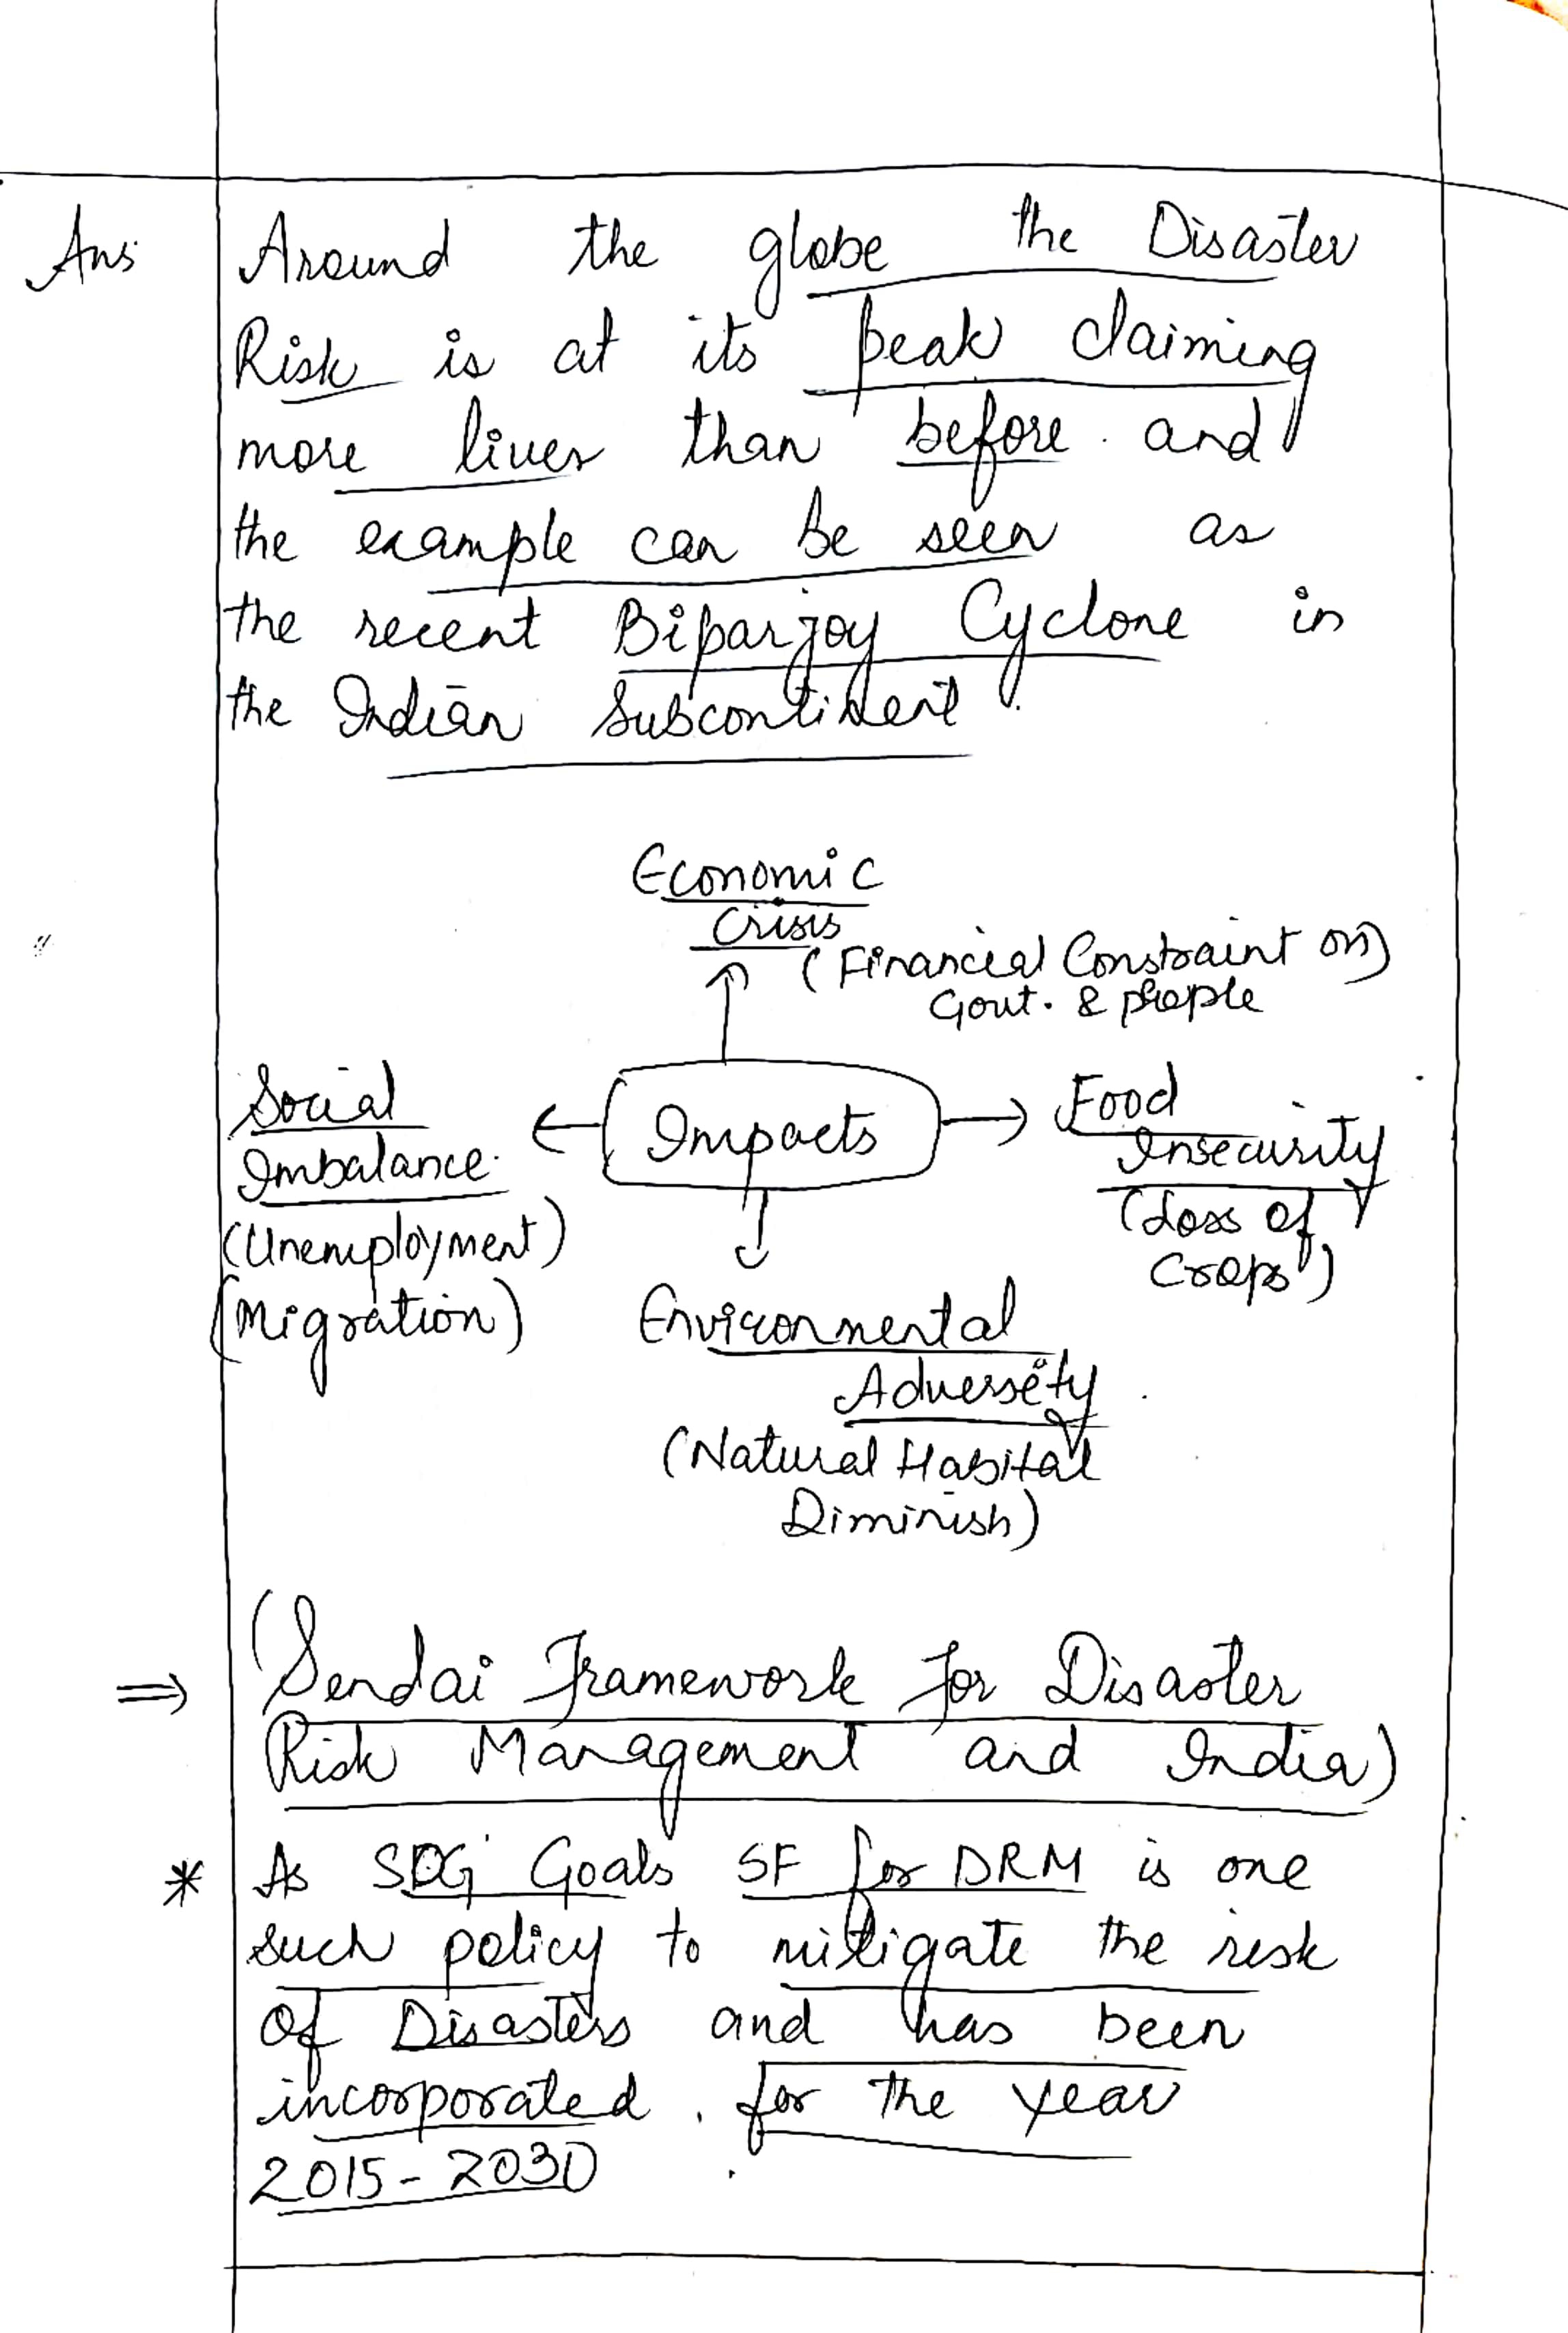 Ans
Around the globe the Disaster
Risk is at its peak claiming
more lives than before and
the example can be seen as
the recent Biparjoy Cyclone in
the Indian Subcontinent.
Economic
Crisis
(Financial Constraint on)
Govt. & people
Social
Imbalance
(Unemployment)
(Migration)
Impacts
Food
Insecurity
(Loss of
Crops)
Environmental
Adversity
(Natural Habital
Diminish)
⇒ (Sendai Framework for Disaster
Risk Management and India)
* As SDG Goals SF for DRM is one
such policy to mitigate the risk
of Disasters and has been
incorporated for the year
2015-2030